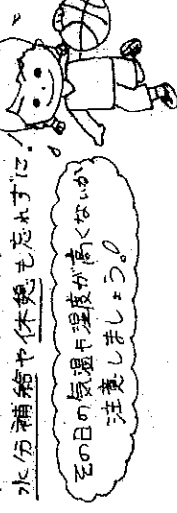 水分補給や休憩も忘れずに!
その日の気温や湿度が高くないか
注意しましょう。